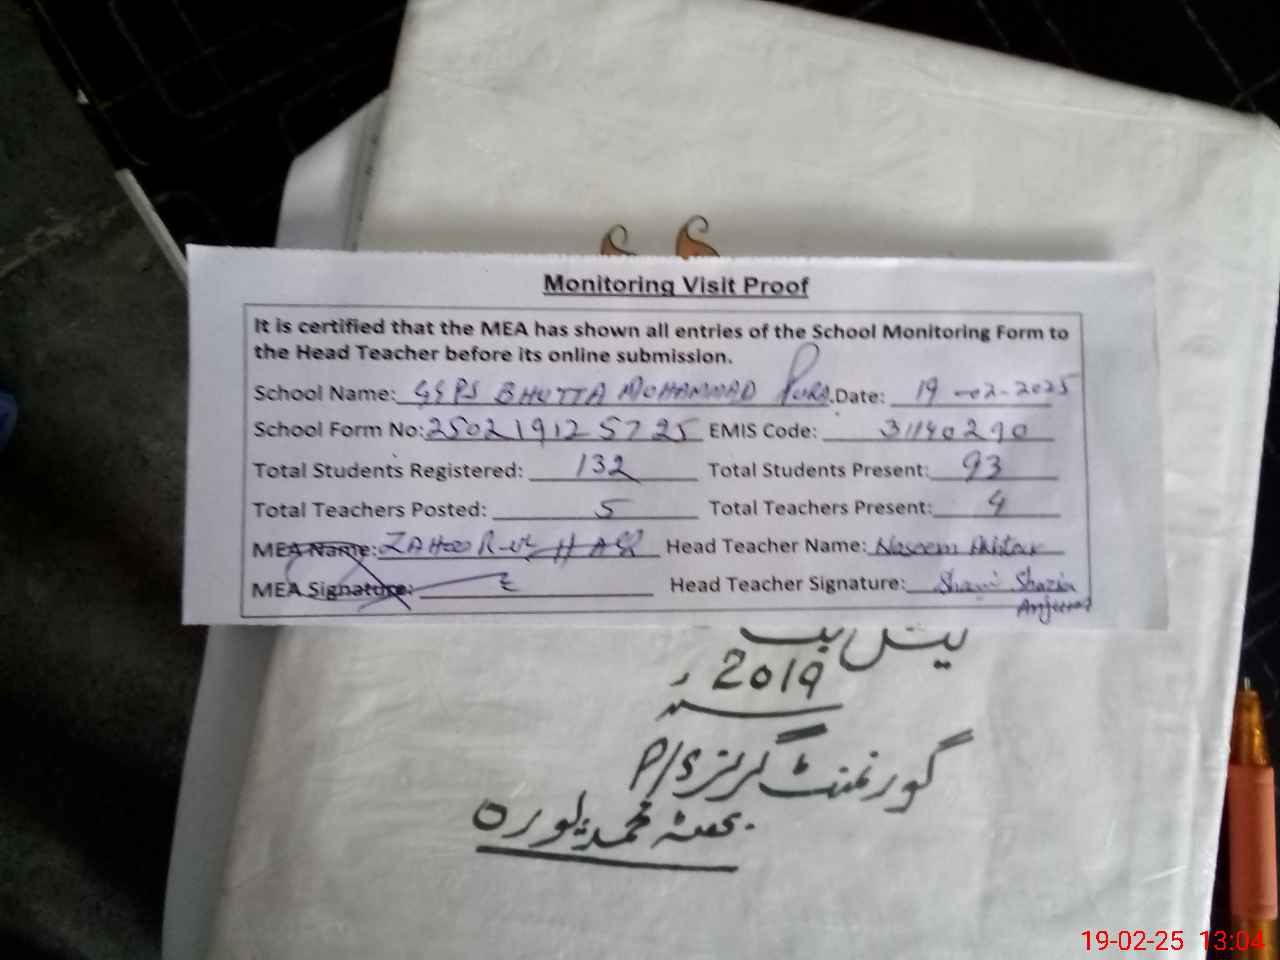 Monitoring Visit Proof
It is certified that the MEA has shown all entries of the School Monitoring Form to
the Head Teacher before its online submission.
School Name: GGPS BHUTTA MOHAMMAD PURA. Date: 19-02-2025
School Form No: 250219125725 EMIS Code: 31140290
Total Students Registered: 132 Total Students Present: 93
Total Teachers Posted: 5 Total Teachers Present: 4
MEA Name: ZAHOOR-UL HAQ Head Teacher Name: Naseem Akhtar
MEA Signature: Head Teacher Signature: Shazia
Anjum
2019
گورنمنٹ گرلز P/S
بھٹہ محمد پورہ
19-02-25 13:04